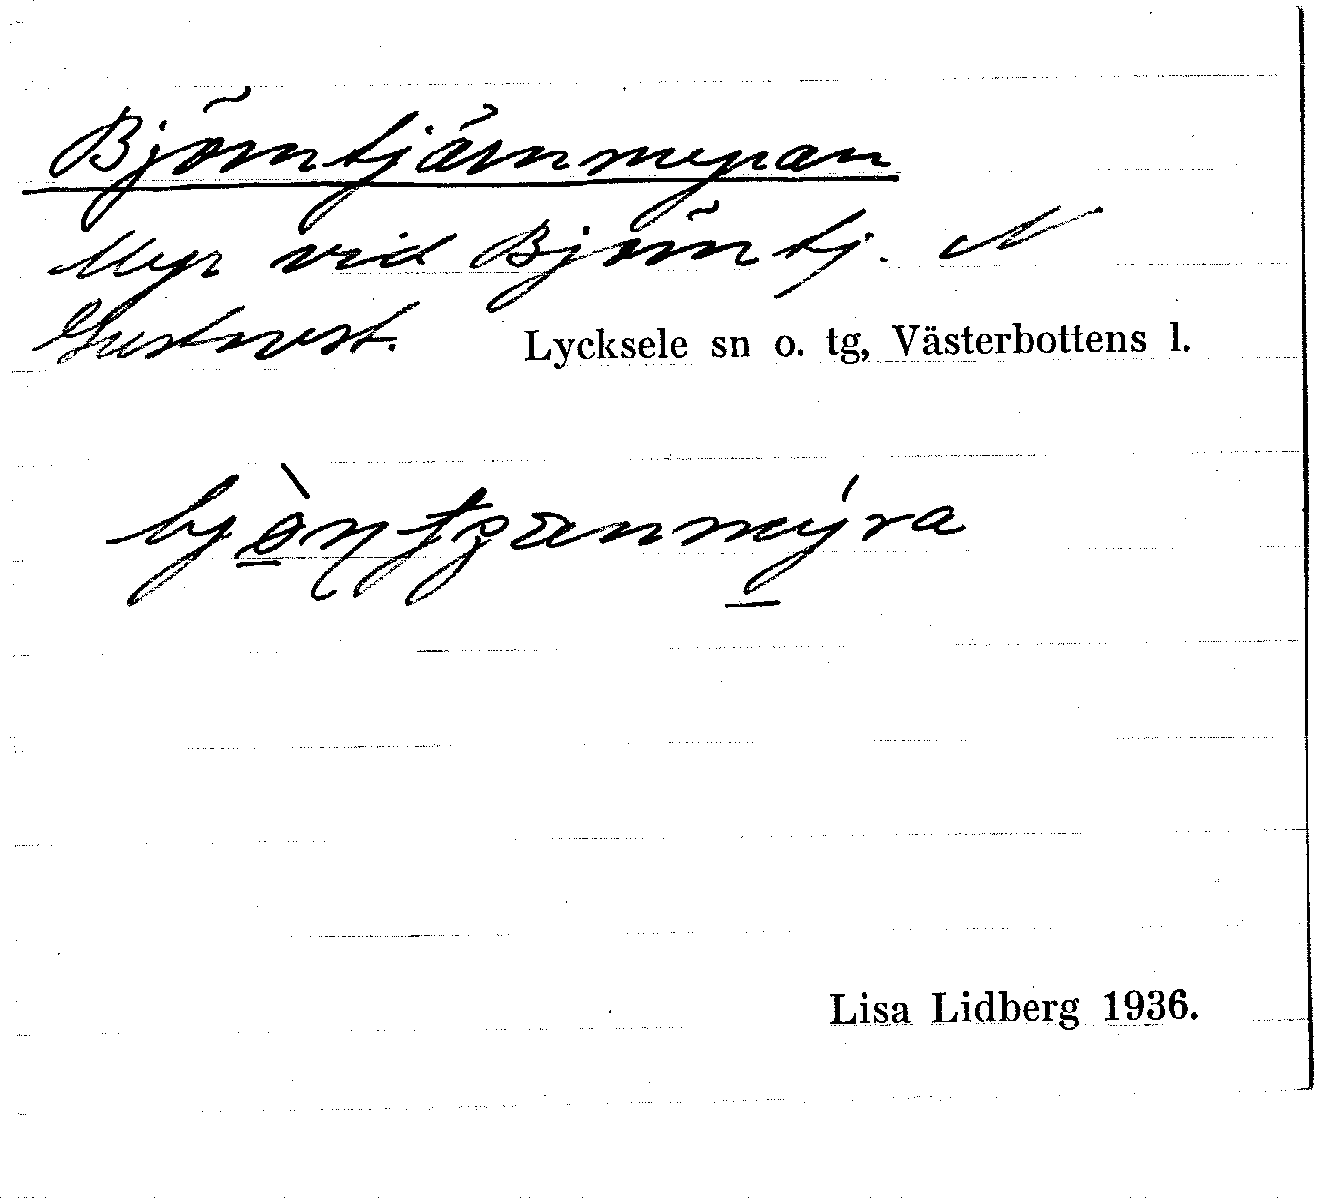 Björntjärnmyran
Myr vid Björntj. N
Gustavst. Lycksele sn o. tg, Västerbottens l.
Lisa Lidberg 1936.